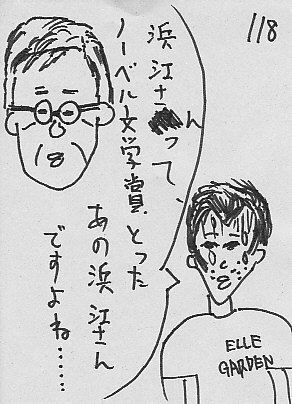 118
浜江さんって、
ノーベル文学賞とった
あの浜江さん
ですよね……
ELLE
GARDEN